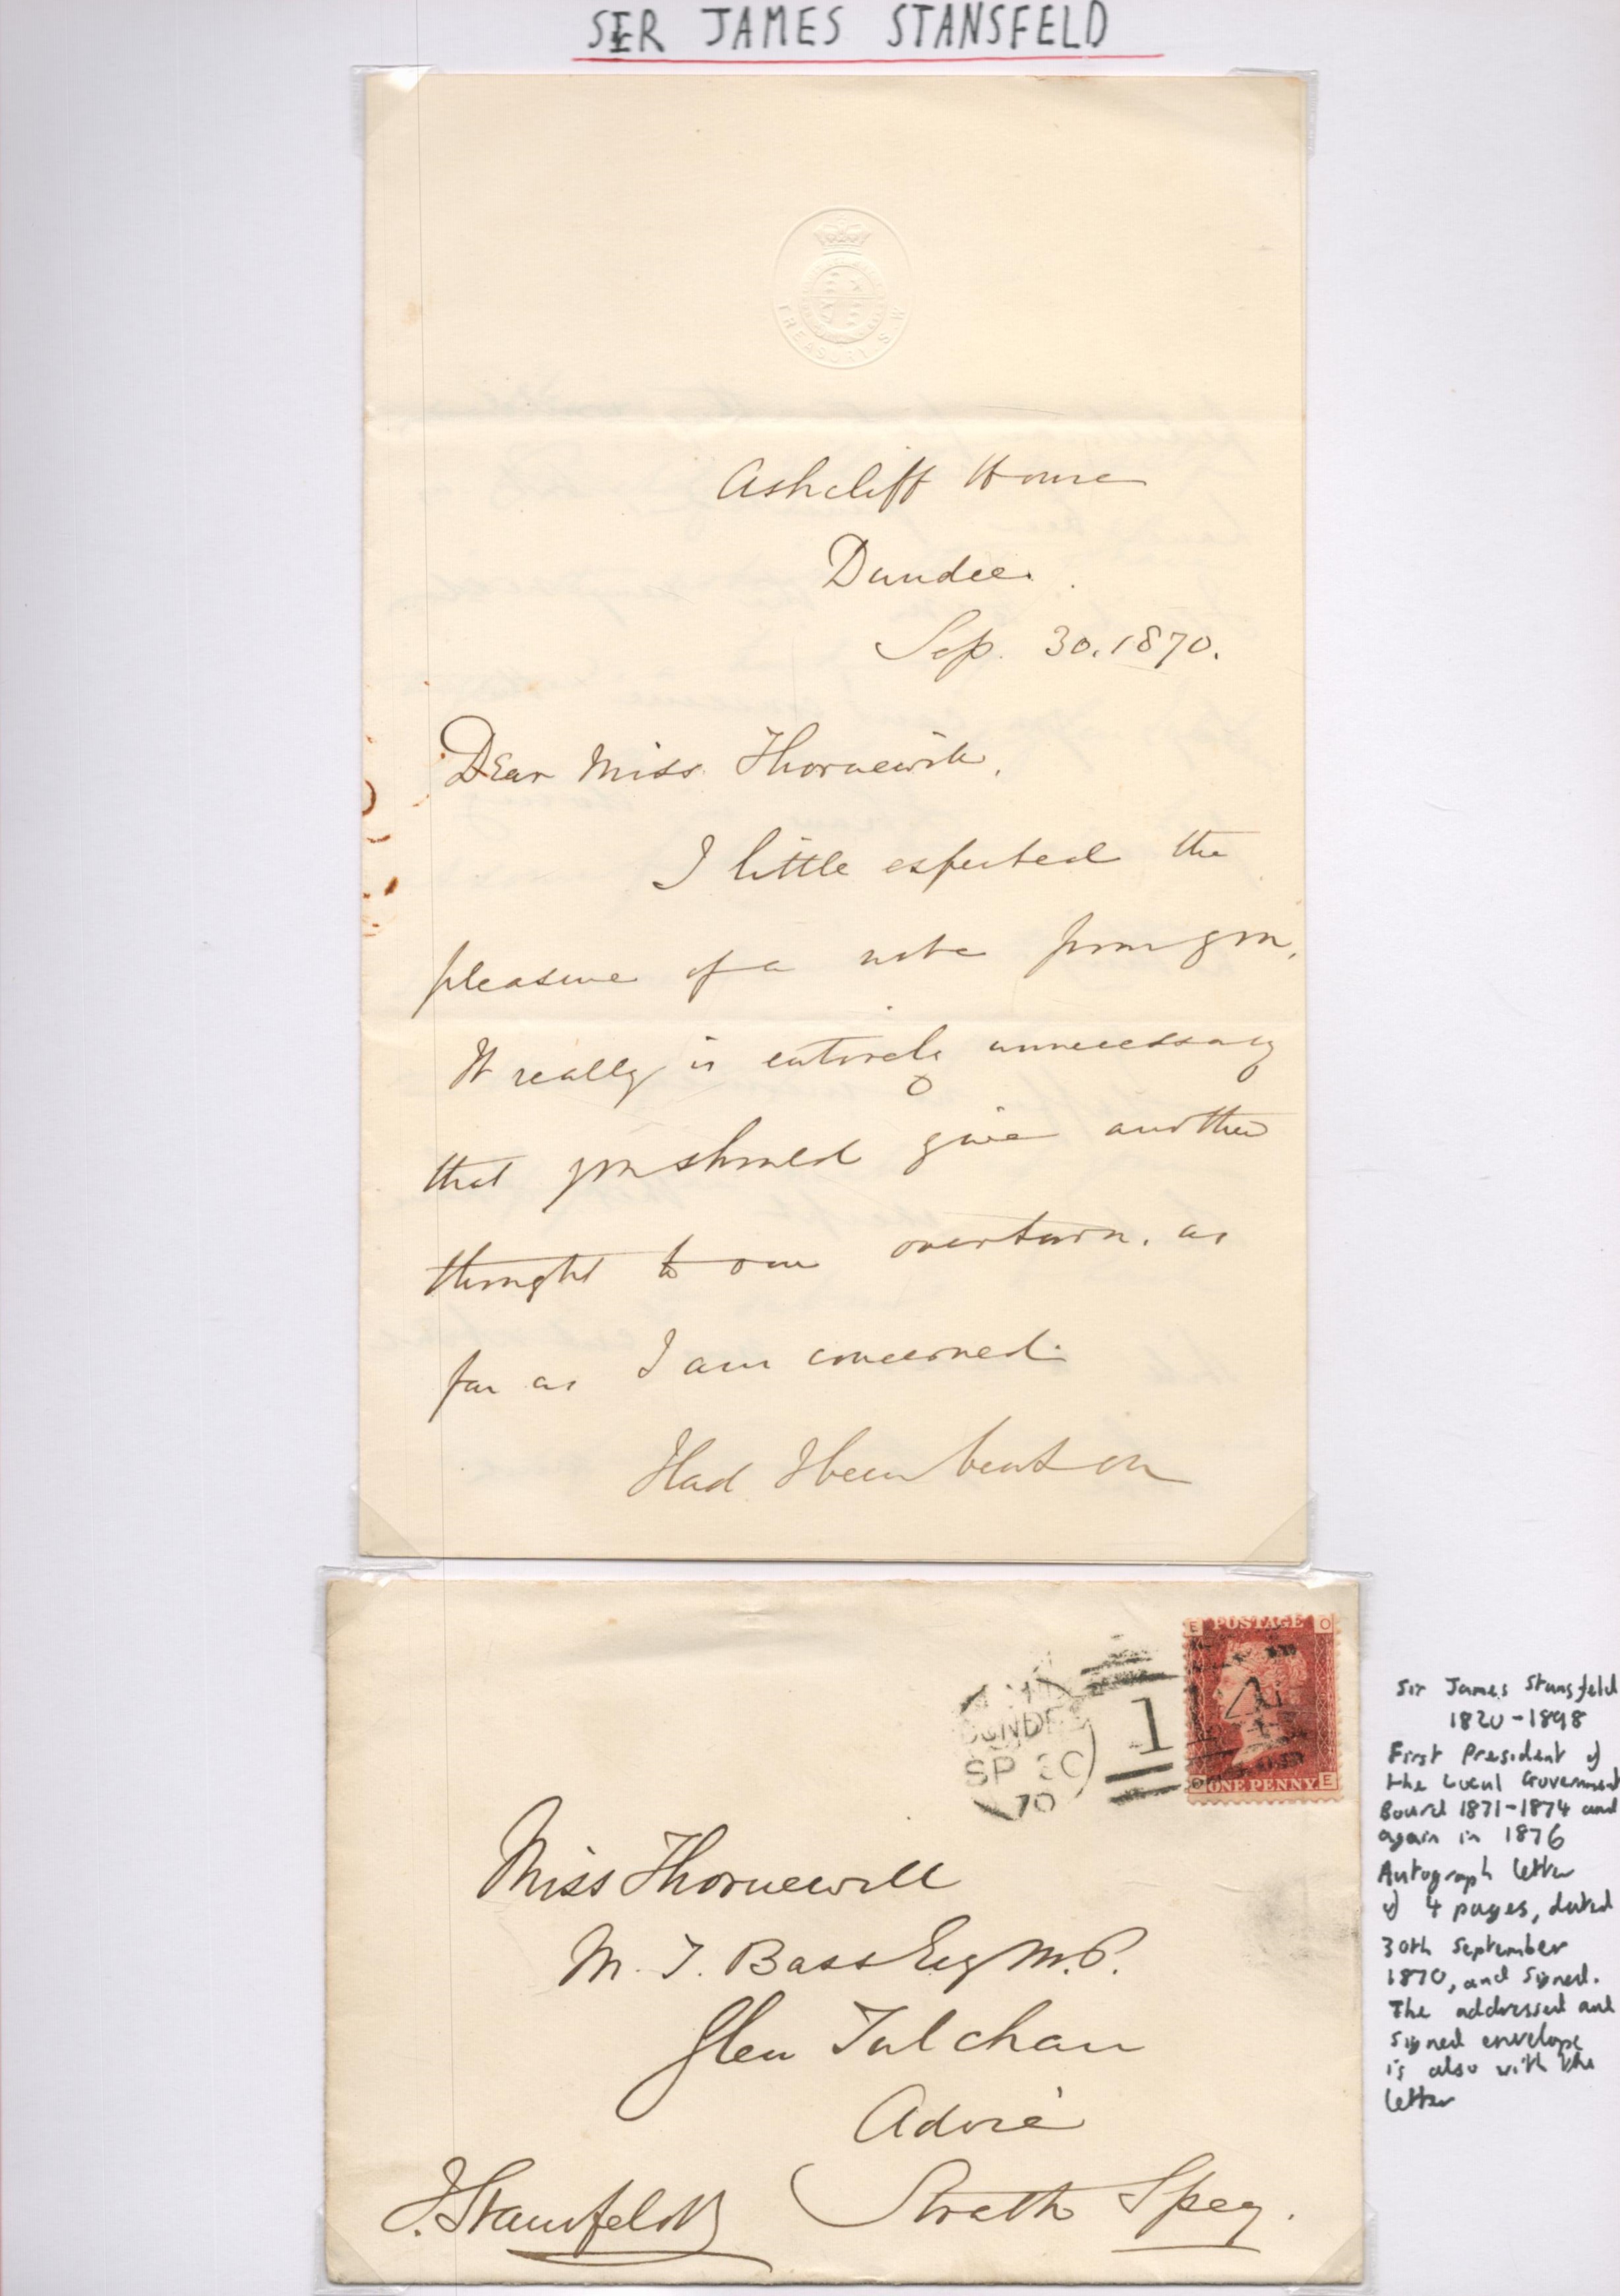 SIR JAMES STANSFELD
TREASURY S W
Ashcliff House
Dundee.
Sep. 30. 1870.
Dear Miss Thornewill,
I little expected the
pleasure of a note from you.
It really is entirely unnecessary
that you should give another
thought to our overturn, as
far as I am concerned.
Had I been bent on
POSTAGE
E O
DUNDEE
SP 30
70
114
O ONE PENNY E
Miss Thornewill
M. T. Bass Esq M.P.
Glen Tulchan
Advie
Strath Spey.
J. Stansfeld
Sir James Stansfeld
1820-1898
First President of
the Local Government
Board 1871-1874 and
again in 1876
Autograph letter
of 4 pages, dated
30th September
1870, and signed.
The addressed and
signed envelope
is also with the
letter